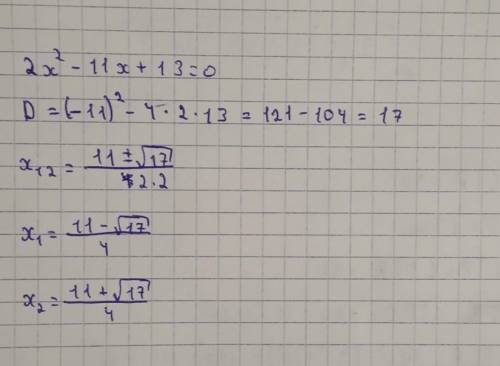 2x² - 11x + 13 = 0
D = (-11)² - 4 · 2 · 13 = 121 - 104 = 17
x₁₂ = (11 ± √17) / (2 · 2)
x₁ = (11 - √17) / 4
x₂ = (11 + √17) / 4